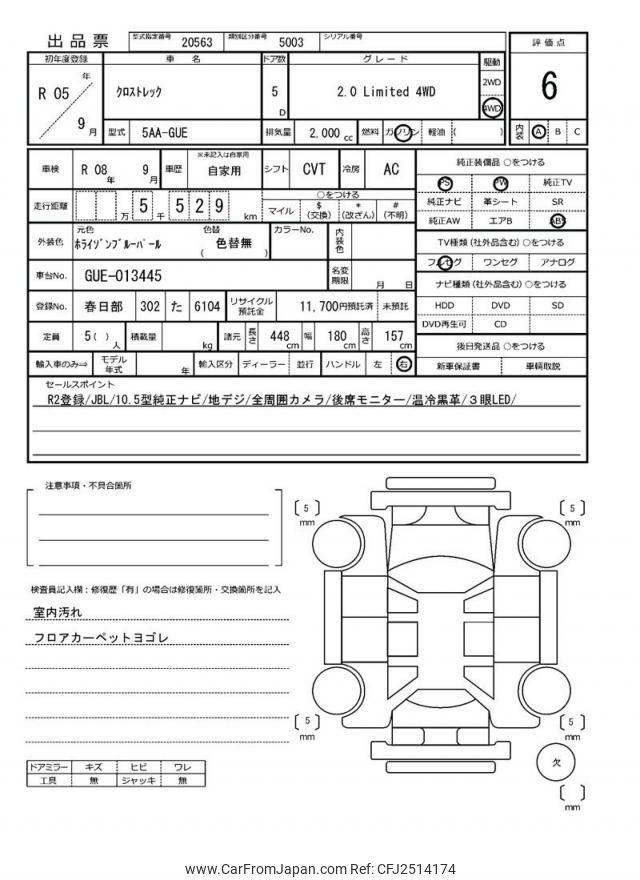 出品票
型式指定番号 20563 類別区分番号 5003 シリアル番号
評価点
6
初年度登録 車名 ドア数 グレード 駆動
R 05 年 9 月
クロストレック
5 D
2.0 Limited 4WD
2WD
4WD
型式 5AA-GUE 排気量 2,000 cc 燃料 ガソリン 軽油 ( )
内装 A B C
車検 R 08 年 9 月 車歴 ※未記入は自家用 自家用 シフト CVT 冷房 AC
純正装備品 ○をつける
PS PW 純正TV
純正ナビ 革シート SR
純正AW エアB ABS
走行距離 万 5 千 5 2 9 km
○をつける
マイル $ (交換) * (改ざん) # (不明)
外装色 元色 ﾎﾗｲｿﾞﾝﾌﾞﾙｰﾊﾟｰﾙ 色替 ( 色替無 ) カラーNo. 内装色
TV種類 (社外品含む) ○をつける
フルセグ ワンセグ アナログ
車台No. GUE-013445 名変期限 月 日
ナビ種類 (社外品含む) ○をつける
HDD DVD SD
DVD再生可 CD
登録No. 春日部 302 た 6104 リサイクル預託金 11,700円預託済 未預託
定員 5 ( ) 人 積載量 kg 諸元 長さ 448 cm 幅 180 cm 高さ 157 cm
後日発送品 ○をつける
新車保証書 車輌取説
輸入車のみ⇒ モデル年式 年 輸入区分 ディーラー 並行 ハンドル 左 右
セールスポイント
R2登録/JBL/10.5型純正ナビ/地デジ/全周囲カメラ/後席モニター/温冷黒革/３眼LED/
注意事項・不具合箇所
検査員記入欄：修復歴「有」の場合は修復箇所・交換箇所を記入
室内汚れ
フロアカーペットヨゴレ
ドアミラー キズ ヒビ ワレ
工具 無 ジャッキ 無
[ 5 ] mm
[ 5 ] mm
[ 5 ] mm
[ 5 ] mm
欠
[ ] mm
www.CarFromJapan.com Ref: CFJ2514174